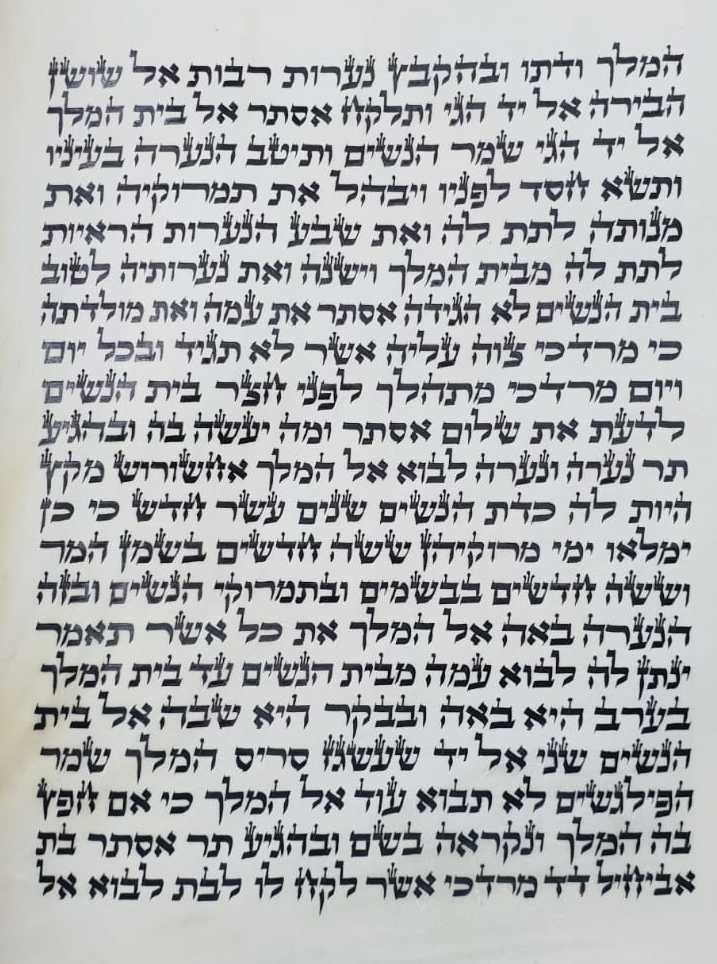 המלך ודתו ובהקבץ נערות רבות אל שושן
הבירה אל יד הגי ותלקח אסתר אל בית המלך
אל יד הגי שמר הנשים ותיטב הנערה בעיניו
ותשא חסד לפניו ויבהל את תמרוקיה ואת
מנותה לתת לה ואת שבע הנערות הראיות
לתת לה מבית המלך וישנה ואת נערותיה לטוב
בית הנשים לא הגידה אסתר את עמה ואת מולדתה
כי מרדכי צוה עליה אשר לא תגיד ובכל יום
ויום מרדכי מתהלך לפני חצר בית הנשים
לדעת את שלום אסתר ומה יעשה בה ובהגיע
תר נערה ונערה לבוא אל המלך אחשורוש מקץ
היות לה כדת הנשים שנים עשר חדש כי כן
ימלאו ימי מרוקיהן ששה חדשים בשמן המר
וששה חדשים בבשמים ובתמרוקי הנשים ובזה
הנערה באה אל המלך את כל אשר תאמר
ינתן לה לבוא עמה מבית הנשים עד בית המלך
בערב היא באה ובבקר היא שבה אל בית
הנשים שני אל יד שעשגז סריס המלך שמר
הפילגשים לא תבוא עוד אל המלך כי אם חפץ
בה המלך ונקראה בשם ובהגיע תר אסתר בת
אביחיל דד מרדכי אשר לקח לו לבת לבוא אל